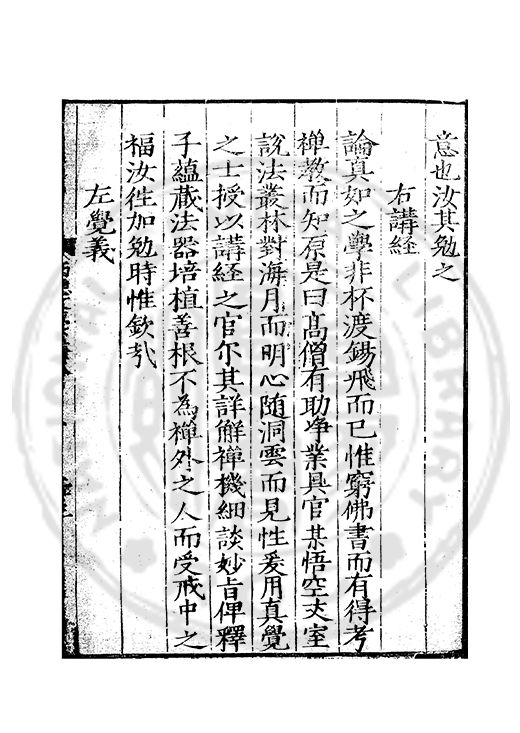 意也汝其勉之
右講経
論真如之學非杯渡錫飛而已惟窮佛書而有得考
禅教而知原是曰高僧有助净業具官某悟空丈室
說法叢林對海月而明心随洞雲而見性爰用真覺
之士授以講経之官尓其詳觧禅機細談妙㫖俾釋
子藴蔵法器培植善根不為禅外之人而受戒中之
福汝徃加勉時惟欽㢤
左覺義